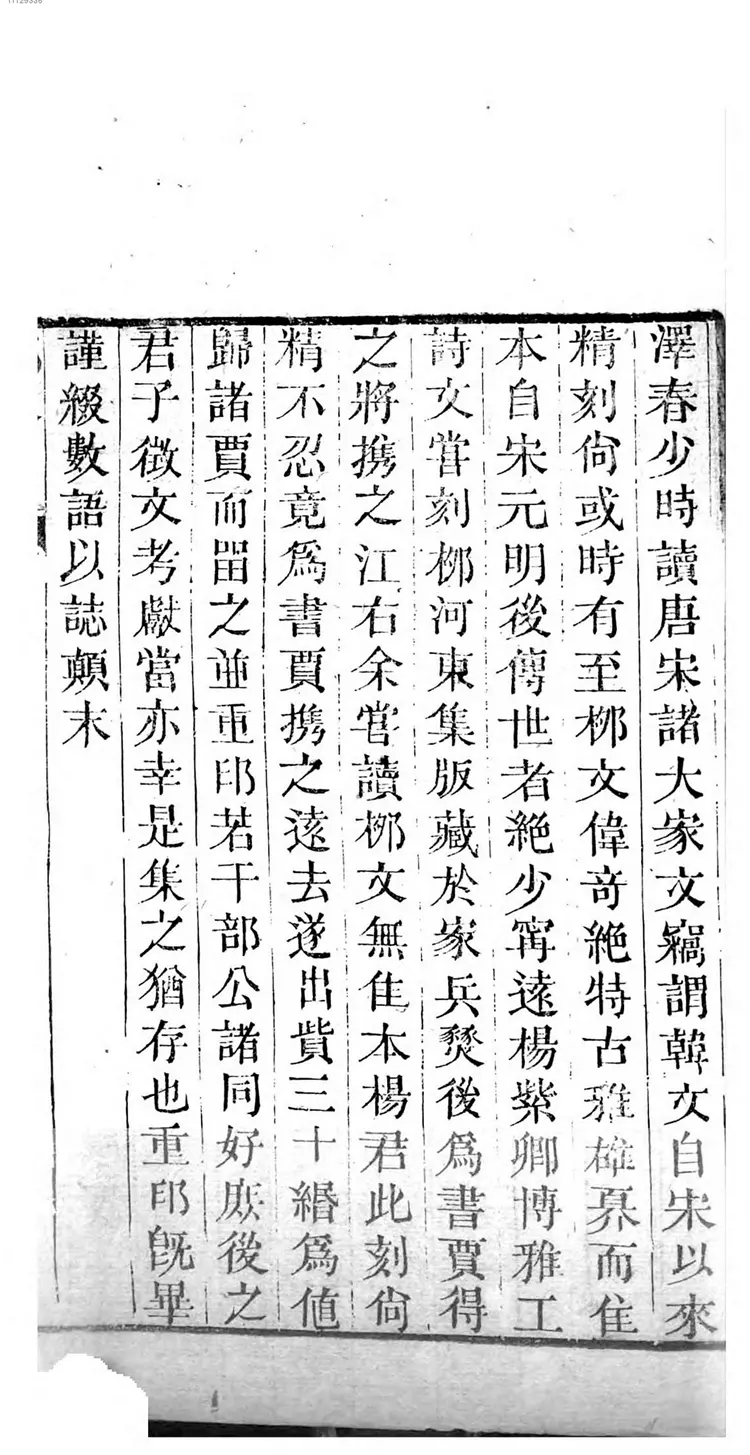 澤春少時讀唐宋諸大家文竊謂韓文自宋以來
精刻尙或時有至栁文偉奇絶特古雅雄奡而佳
本自宋元明後傳世者絶少甯遠楊紫卿博雅工
詩文嘗刻栁河東集版藏於家兵燹後爲書賈得
之將携之江右余嘗讀栁文無佳本楊君此刻尙
精不忍竟爲書賈携之遠去遂出貲三十緡爲値
歸諸賈而畱之並重印若干部公諸同好庶後之
君子徵文考獻當亦幸是集之猶存也重印旣畢
謹綴數語以誌顛末